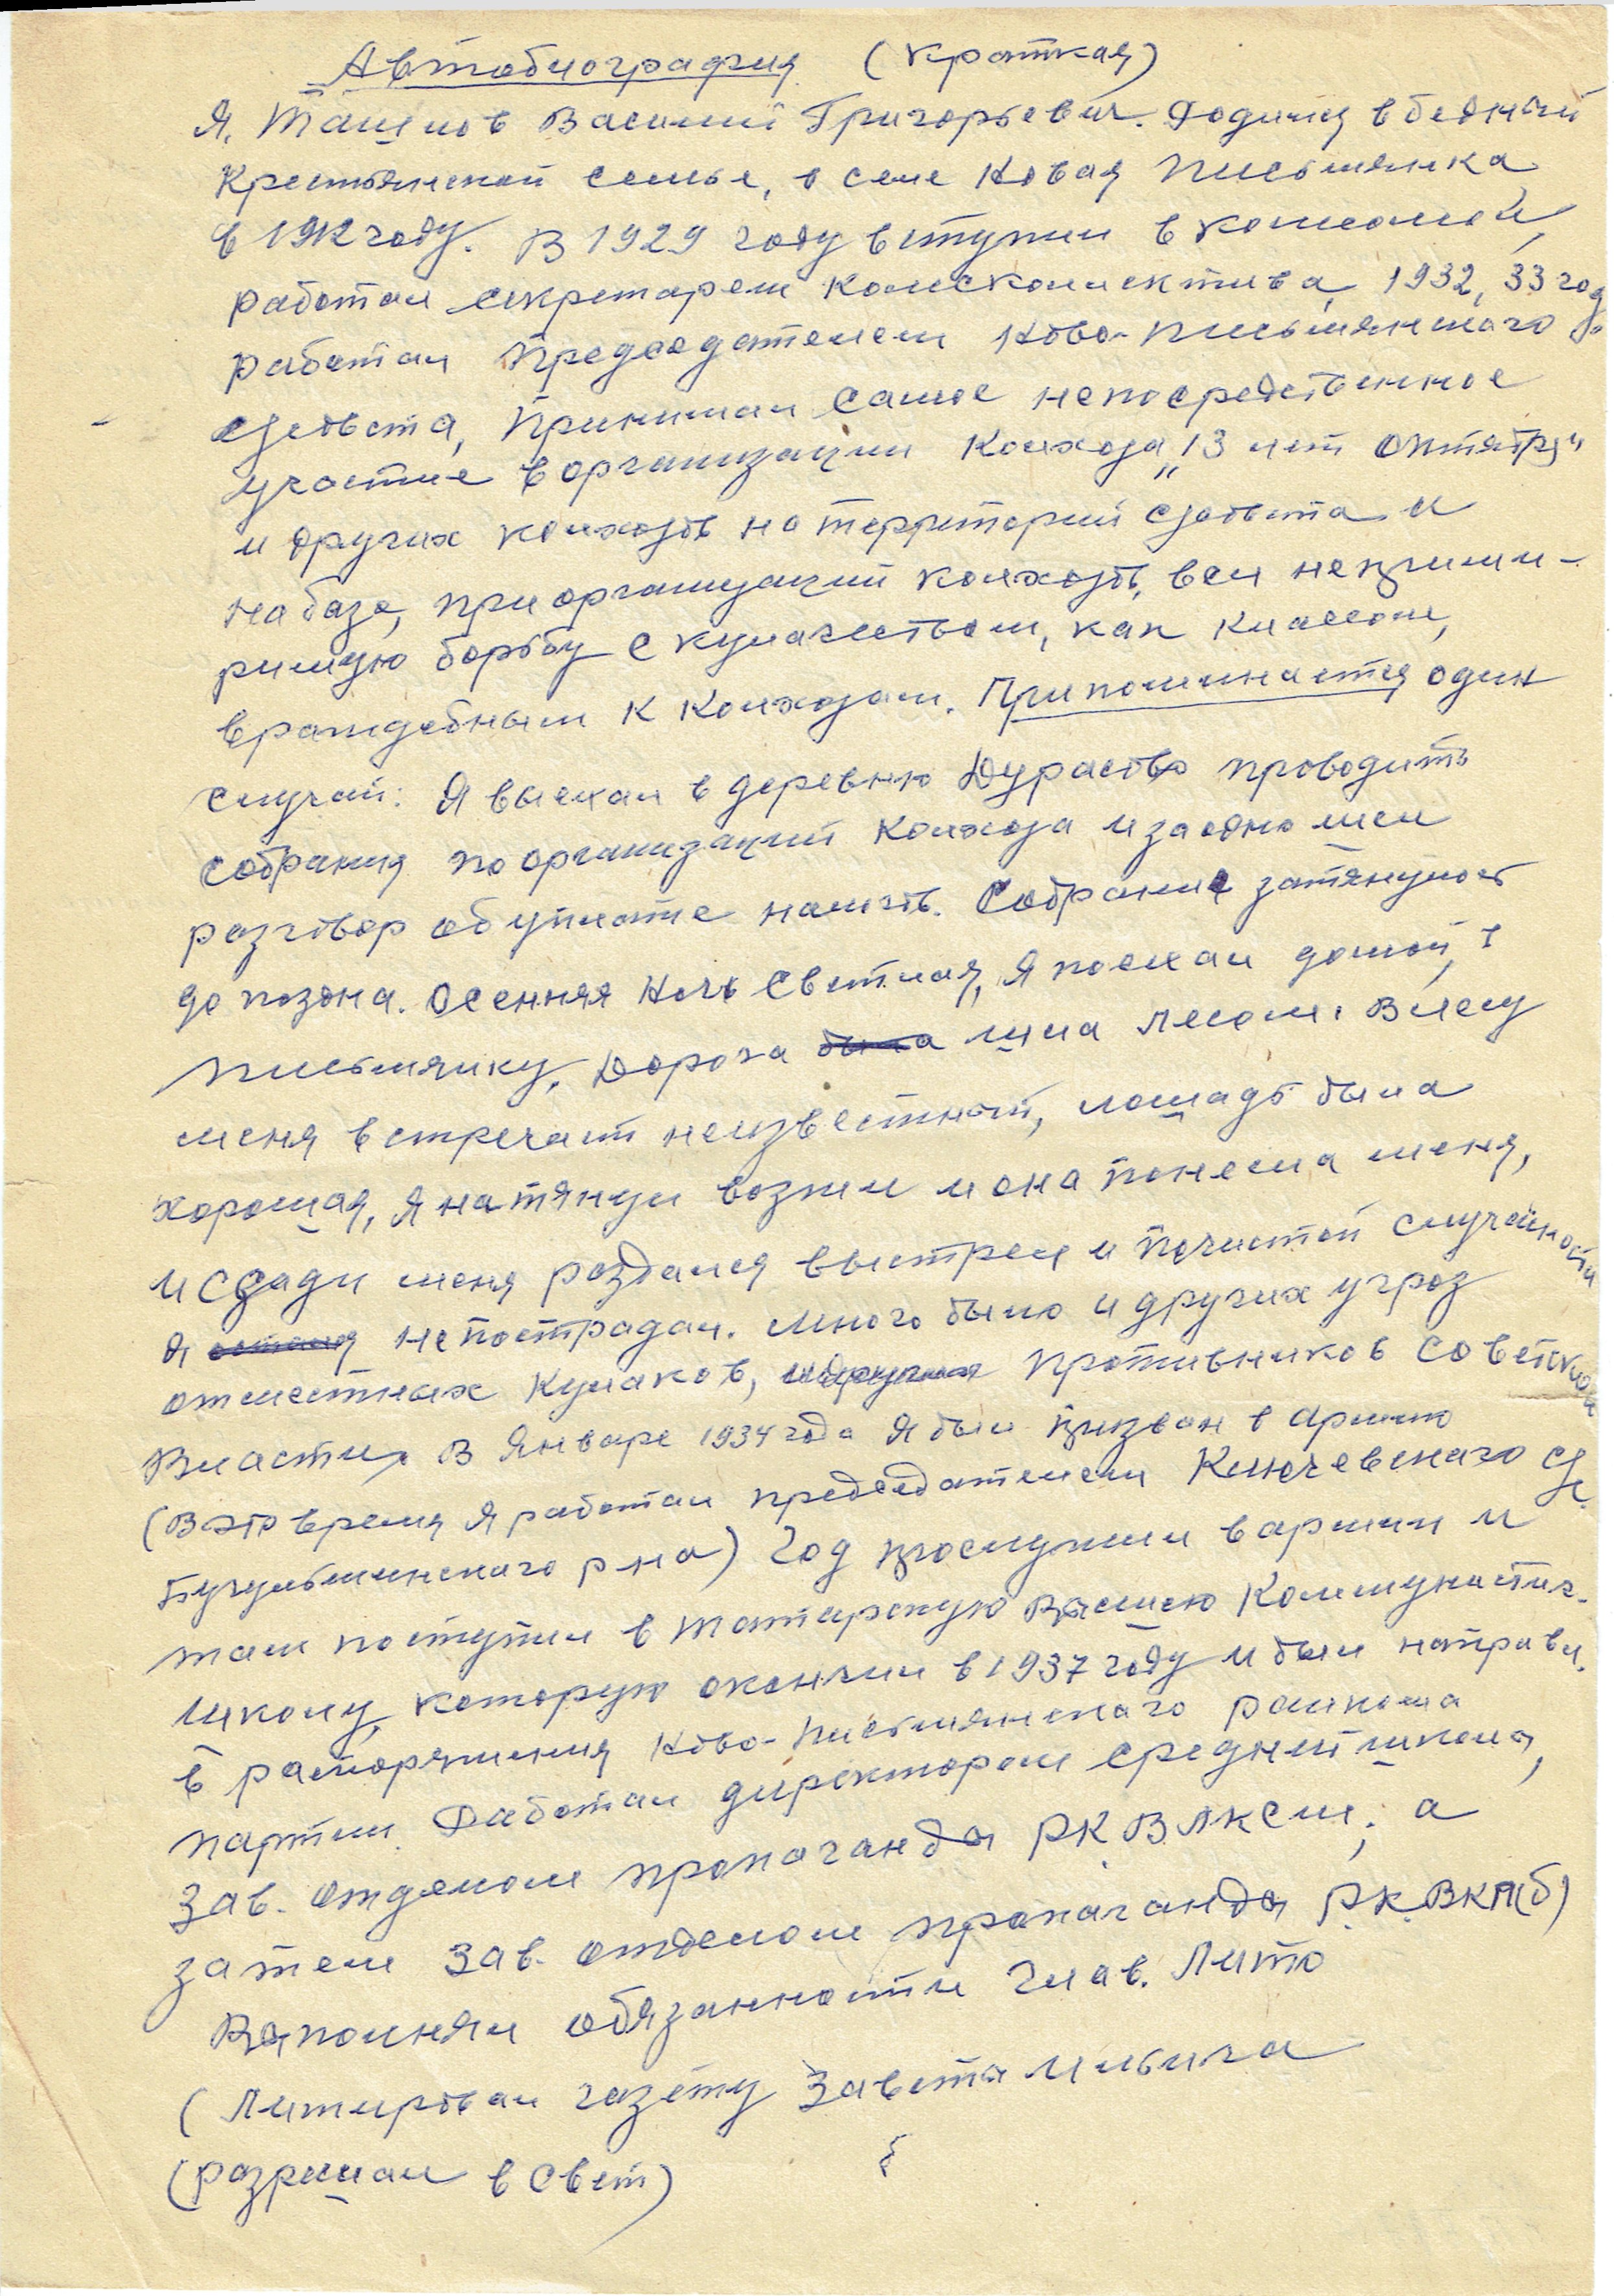 Автобиография (краткая)
Я, Ташлов Василий Григорьевич. Родился в бедный
крестьянской семье, в селе Новая Письмянка
в 1912 году. В 1929 году вступил в комсомол,
работал секретарем Комсколлектива, 1932, 33 год.
работал председателем Ново-Письмянского
с/совета, принимал самое непосредственное
участие в организации Колхоза „13 лет Октября"
и других колхозов на территорий с/совета и
на базе, при организаций колхозов, вел неприми-
римую борьбу с кулачеством, как классом,
враждебным к Колхозам. Припоминается один
случай: Я выехал в деревню Дурасово проводить
собрания по организаций Колхоза и заодно шел
разговор об уплате налогов. Собрание затянулось
до поздна. Осенняя ночь светлая, я поехал домой, в
Письмянку, Дорога была шла лесом. В лесу
меня встречает неизвестный, лошадь была
хорошая, я натянул возжи и она понесла меня,
и сзади меня раздался выстрел и по чистой случайности
я остался не пострадал. Много было и других угроз
от местных Кулаков, и других противников советской
Власти. В Январе 1934 года я был призван в армию
(В это время я работал председателем Ключевского с/с.
Бугульминского р-на) Год прослужил в армии и
там поступил в татарскую Высшею Коммунистич.
школу, которую окончил в 1937 году и был направл.
в распоряжения Ново-Письмянского райкома
партии. Работал директором средней школы,
Зав. отделом пропаганды РК ВЛКСМ, а
затем Зав. отделом пропаганды Р.К. ВКП(б)
Выполнял обязанности Глав. Лито
(Литировал газету Заветы Ильича
(разрешал в свет)